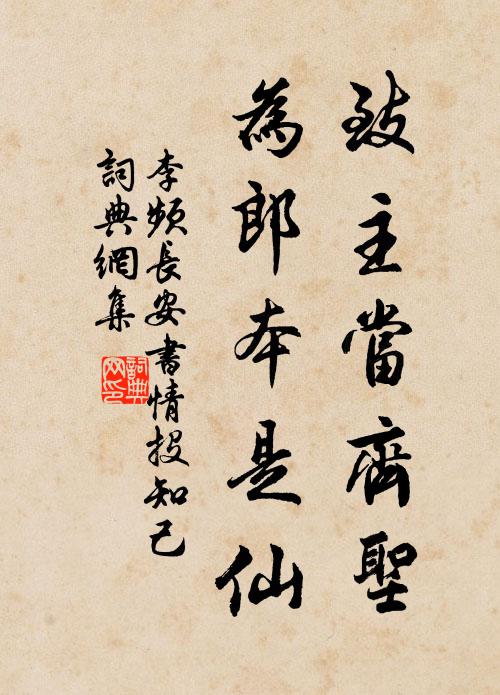 致主當齊聖
為郎本是仙
李頻長安書情投知己
詞典網集
詞典
网印